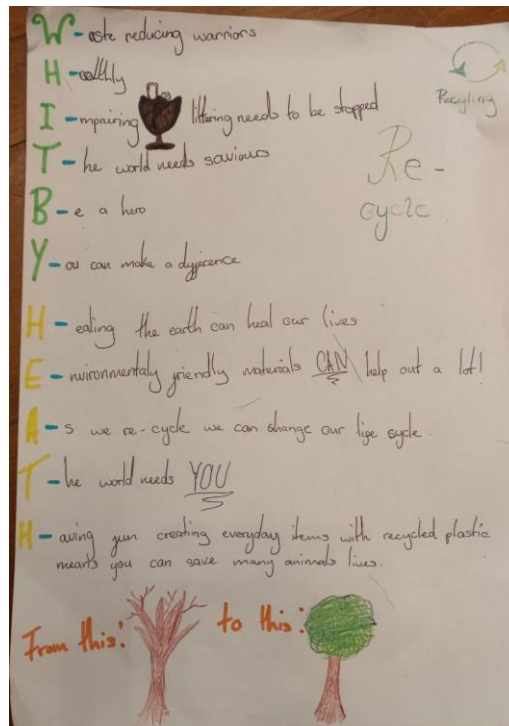 W-aste reducing warriors
H-ealthly
Recyling
I-mpairing littering needs to be stopped
T-he world needs saviours
Re-
cycle
B-e a hero
Y-ou can make a difference
H-ealing the earth can heal our lives
E-nvironmentaly friendly materials CAN help out a lot!
A-s we re-cycle we can change our life cycle.
T-he world needs YOU
H-aving fun creating everyday items with recycled plastic
means you can save many animals lives.
From this! to this: